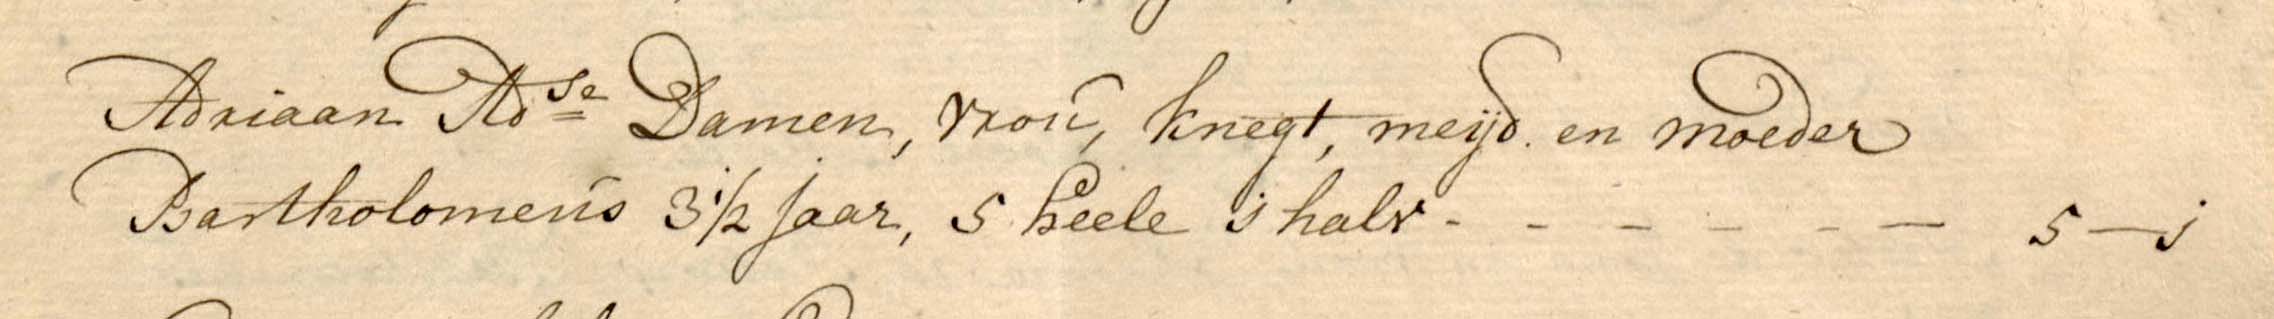 Adriaan Adse Damen, vrou, knegt, meijd. en moeder
Bartholomeus 3 1/2 jaar, 5 heele j halv - - - - - — 5 — j